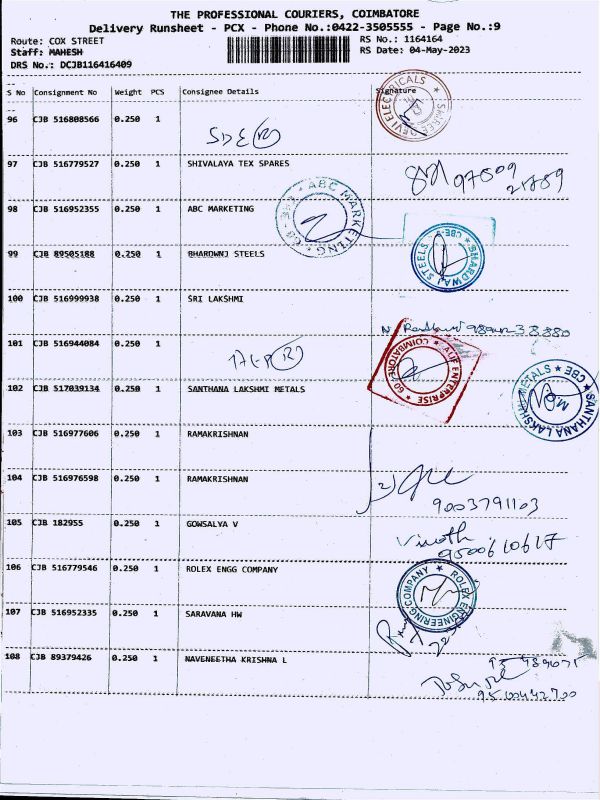 THE PROFESSIONAL COURIERS, COIMBATORE
Delivery Runsheet - PCX - Phone No.:0422-3505555 - Page No.:9
Route: COX STREET RS No.: 1164164
Staff: MAHESH RS Date: 04-May-2023
DRS No.: DCJB116416409
S No Consignment No Weight PCS Consignee Details Signature
96 CJB 516808566 0.250 1
97 CJB 516779527 0.250 1 SHIVALAYA TEX SPARES
98 CJB 516952355 0.250 1 ABC MARKETING
ABC MARKETING
99 CJB 89505188 0.250 1 BHARDWNJ STEELS
BHARDWAJ STEELS CBE
100 CJB 516999938 0.250 1 SRI LAKSHMI
101 CJB 516944084 0.250 1
COIMBATORE
ENTERPRISE
102 CJB 517039134 0.250 1 SANTHANA LAKSHMI METALS
SANTHANA LAKSHMI METALS CBE
103 CJB 516977606 0.250 1 RAMAKRISHNAN
104 CJB 516976598 0.250 1 RAMAKRISHNAN
9003791103
105 CJB 182955 0.250 1 GOWSALYA V
Vinoth
9500610617
106 CJB 516779546 0.250 1 ROLEX ENGG COMPANY
ROLEX ENGINEERING COMPANY
107 CJB 516952335 0.250 1 SARAVANA HW
108 CJB 89379426 0.250 1 NAVENEETHA KRISHNA L